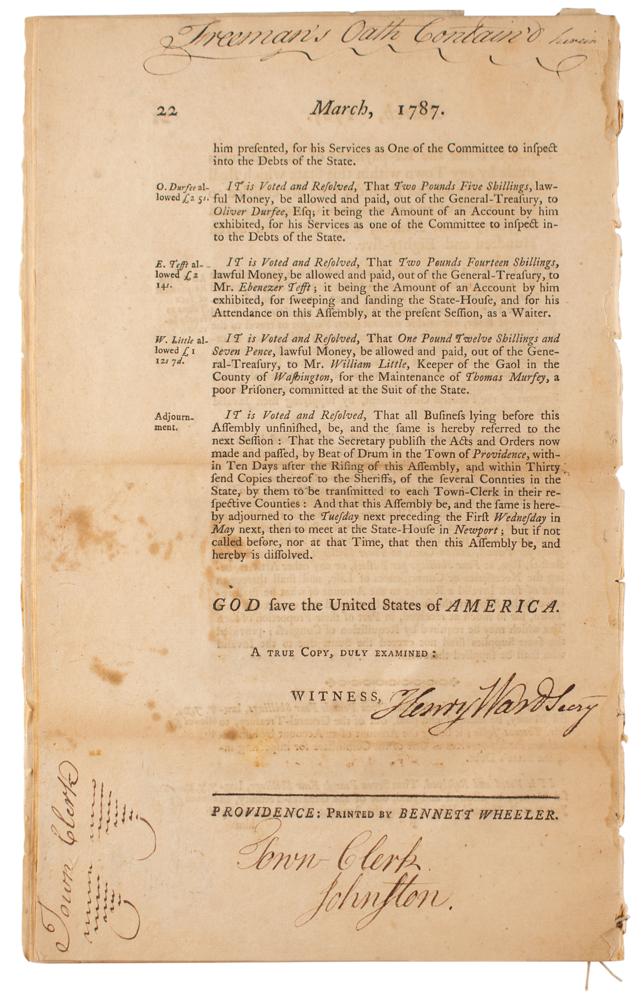 Freeman's Oath Contain'd herein
22 March, 1787.
him preſented, for his Services as One of the Committee to inſpect
into the Debts of the State.
O. Durfee al-
lowed £2 5s.
IT is Voted and Reſolved, That Two Pounds Five Shillings, law-
ful Money, be allowed and paid, out of the General-Treaſury, to
Oliver Durfee, Eſq; it being the Amount of an Account by him
exhibited, for his Services as one of the Committee to inſpect in-
to the Debts of the State.
E. Tefft al-
lowed £2
14s.
IT is Voted and Reſolved, That Two Pounds Fourteen Shillings,
lawful Money, be allowed and paid, out of the General-Treaſury, to
Mr. Ebenezer Tefft; it being the Amount of an Account by him
exhibited, for ſweeping and ſanding the State-Houſe, and for his
Attendance on this Aſſembly, at the preſent Seſſion, as a Waiter.
W. Little al-
lowed £1
12s 7d.
IT is Voted and Reſolved, That One Pound Twelve Shillings and
Seven Pence, lawful Money, be allowed and paid, out of the Gene-
ral-Treaſury, to Mr. William Little, Keeper of the Gaol in the
County of Waſhington, for the Maintenance of Thomas Murfey, a
poor Priſoner, committed at the Suit of the State.
Adjourn-
ment.
IT is Voted and Reſolved, That all Buſineſs lying before this
Aſſembly unfiniſhed, be, and the ſame is hereby referred to the
next Seſſion: That the Secretary publiſh the Acts and Orders now
made and paſſed, by Beat of Drum in the Town of Providence, with-
in Ten Days after the Riſing of this Aſſembly, and within Thirty
ſend Copies thereof to the Sheriffs, of the ſeveral Connties in the
State, by them to be tranſmitted to each Town-Clerk in their re-
ſpective Counties: And that this Aſſembly be, and the ſame is here-
by adjourned to the Tueſday next preceding the Firſt Wedneſday in
May next, then to meet at the State-Houſe in Newport; but if not
called before, nor at that Time, that then this Aſſembly be, and
hereby is diſſolved.
GOD ſave the United States of AMERICA.
A TRUE COPY, DULY EXAMINED:
WITNESS, Henry Ward Secry
PROVIDENCE: PRINTED BY BENNETT WHEELER.
Town Clerk
Johnſton.
Town Clerk